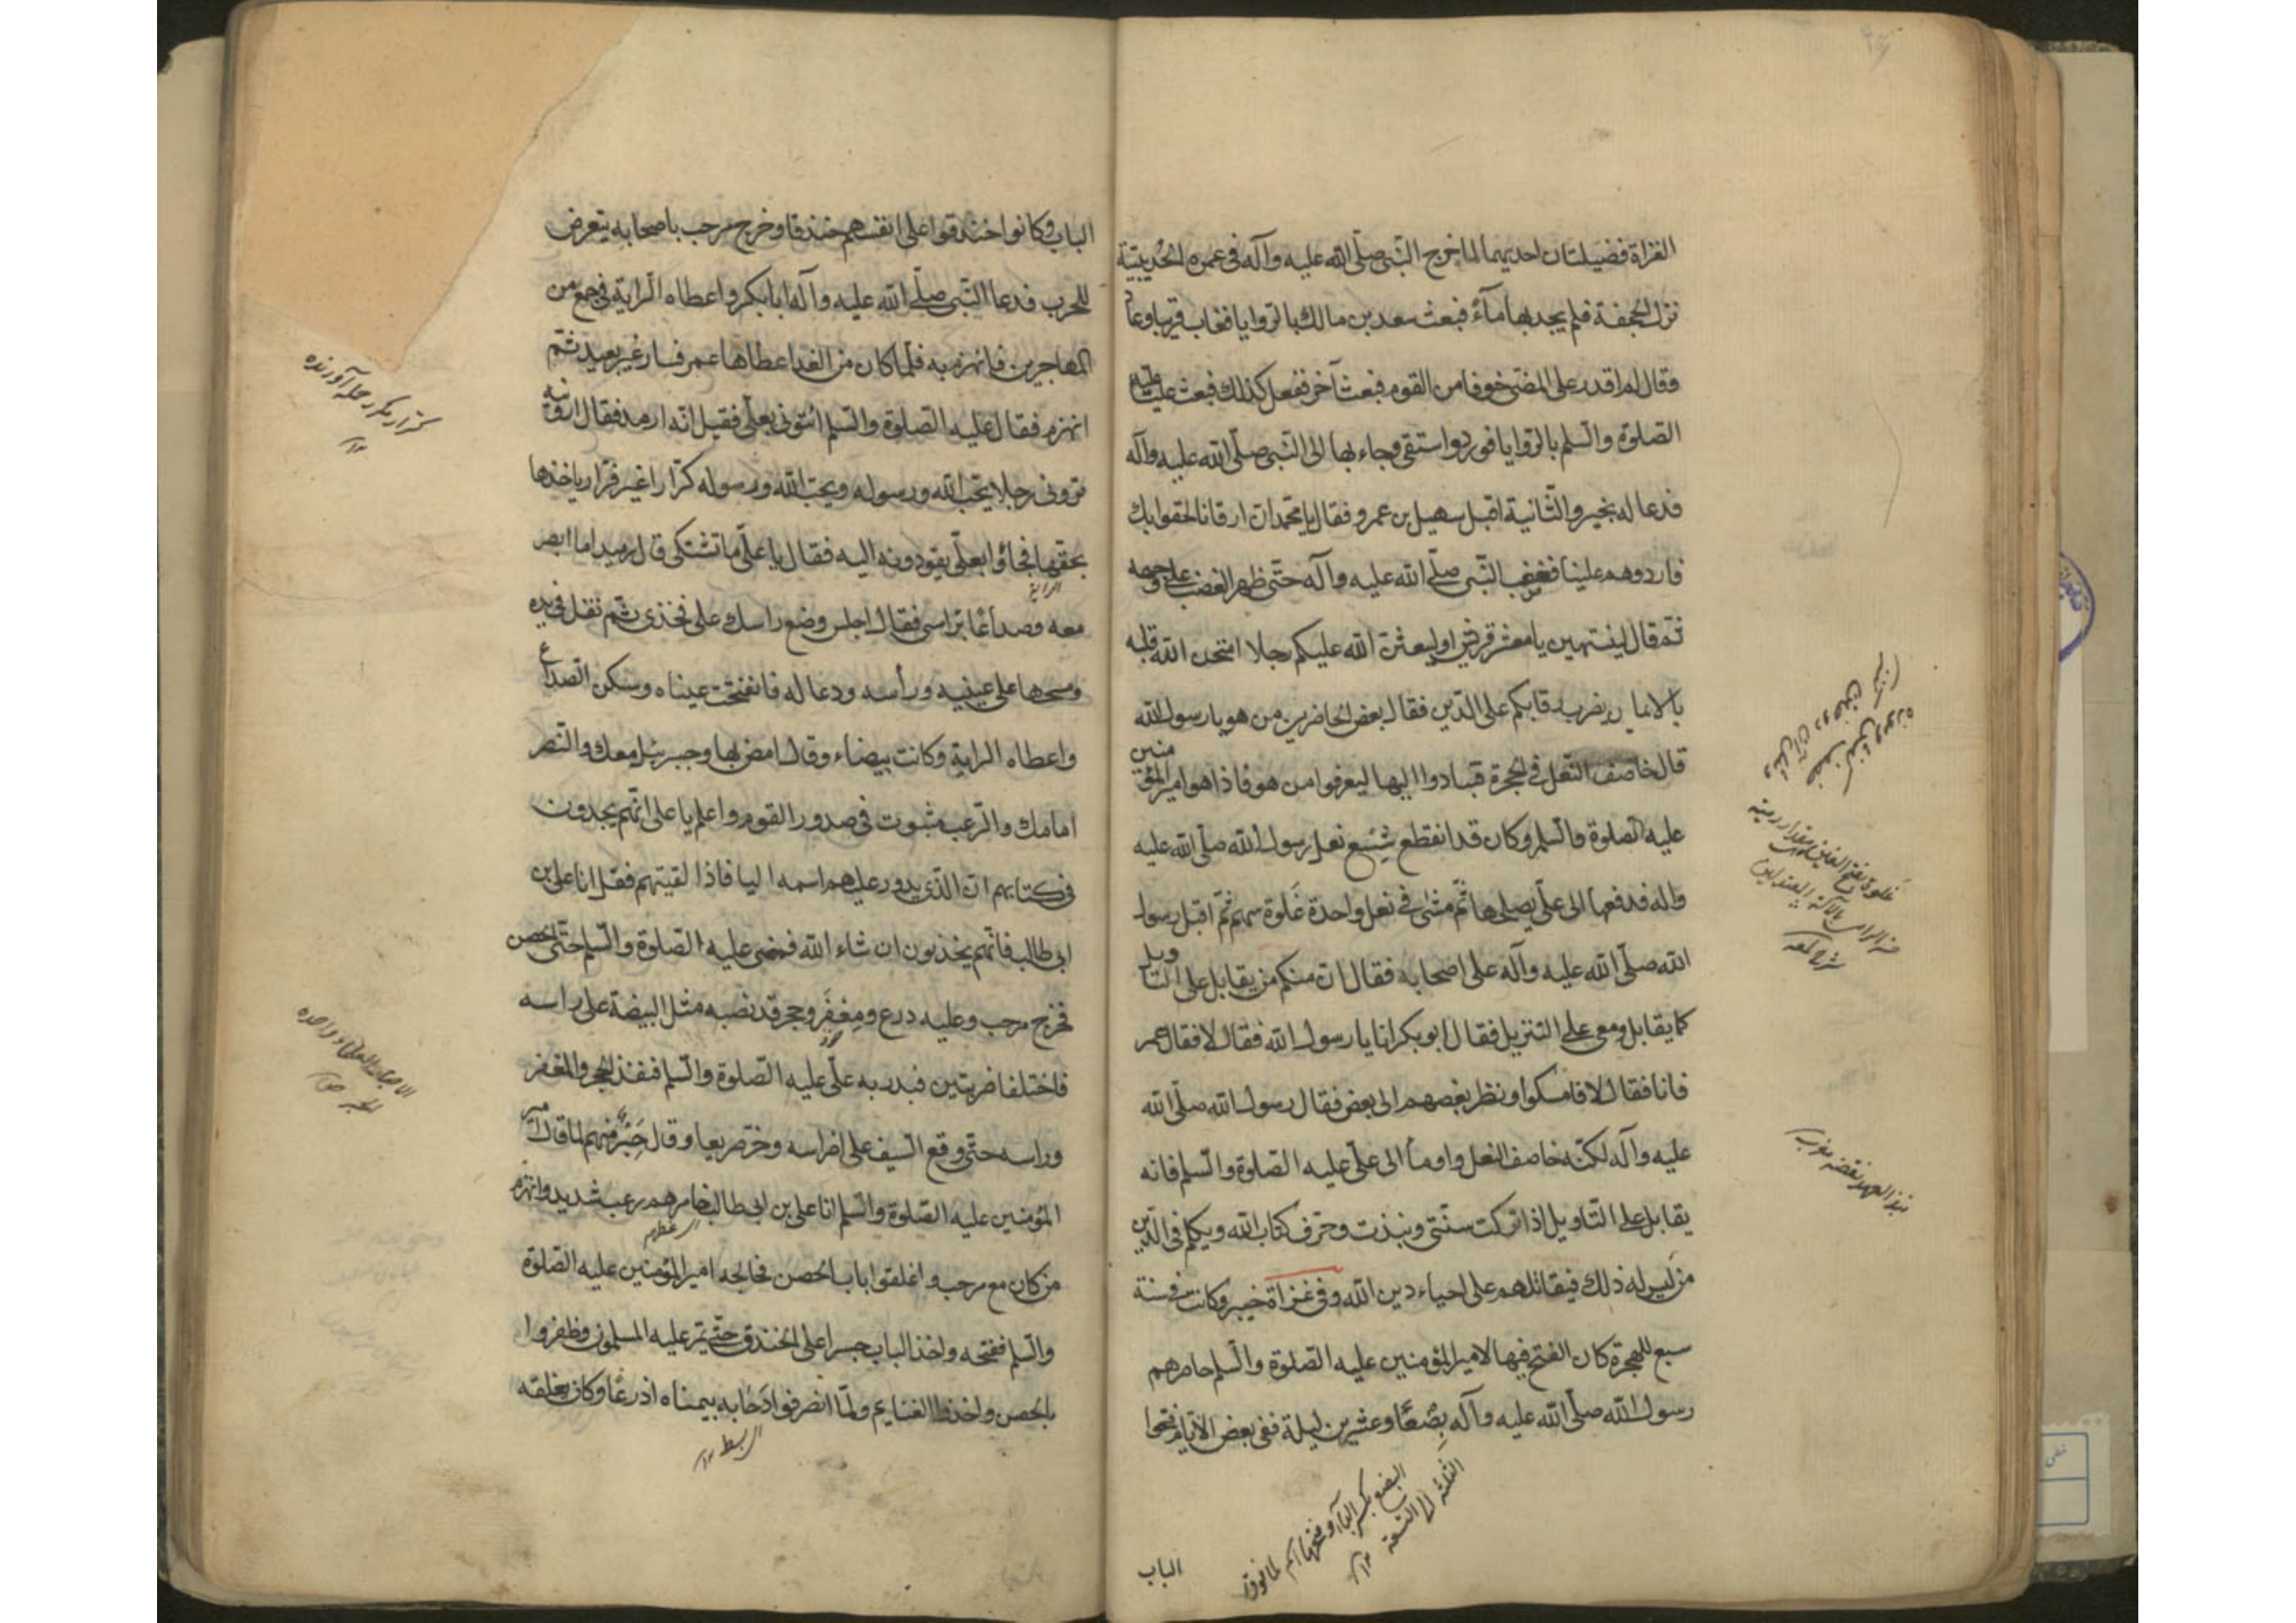 الغزاة فضيلتان احديهما لما خرج النبى صلّى الله عليه وآله فى عمرة الحُديبيّة
نزل الجحفة فلم يجد بها مآءً فبعث سعد بن مالك بالروايا فغاب قريبا وعاد
وقال لم اقدر على المضى خوفا من القوم فبعث آخر ففعل كذلك فبعث عليّا عليه
الصلوة والسلم بالروايا فورد واستقى وجاء بها الى النبى صلّى الله عليه وآله
فدعا له بخير والثانية اقبل سهيل بن عمرو فقال يا محمد ان ارقانا لحقوا بك
فارددوهم علينا فغضب النبى صلّى الله عليه وآله حتّى ظهر الغضب على وجهه
ثم قال لينتهين يا معشر قريش او ليبعثن الله عليكم رجلا امتحن الله قلبه
بالايمان يضرب رقابكم على الدين فقال بعض الحاضرين من هو يا رسول الله
قال خاصف النعل فى الحجرة فبادروا اليها ليعرفوا من هو فاذا هو امير المؤمنين
عليه الصلوة والسلم وكان قد انقطع شِسْع نعل رسول الله صلّى الله عليه
وآله فدفعها الى علىّ يصلحها ثم مشى فى نعل واحدة غَلوة سهم ثم اقبل رسول
الله صلّى الله عليه وآله على اصحابه فقال ان منكم من يقابل على التاويل
كما يقابل معى على التنزيل فقال ابو بكر انا يا رسول الله فقال لا فقال عمر
فانا فقال لا فامسكوا ونظر بعضهم الى بعض فقال رسول الله صلّى الله
عليه وآله لكنّه خاصف النعل واومأ الى علىّ عليه الصلوة والسلم فانه
يقابل على التاويل اذا تركت سنّتى ونبذت وحرّف كتاب الله ويكلم فى الدّين
من ليس له ذلك فيقاتلهم على احياء دين الله وفى غزاة خيبر وكانت فى سنة
سبع للهجرة كان الفتح فيها لامير المؤمنين عليه الصلوة والسلم حاصرهم
رسول الله صلّى الله عليه وآله بِضْعًا وعشرين ليلة ففى بعض الايّام فتحوا
البضع بكسر الباء وفتحها اسم لما فوق
الثلثة الى التسعة ١٢
الباب
غلوة بفتح الغين مقدار رمية
شرح لمعه
نبذ العهد نقضه مغرب
الباب وكانوا خندقوا على انفسهم خندقا وخرج مرحب باصحابه يتعرض
للحرب فدعا النبى صلّى الله عليه وآله ابا بكر واعطاه الراية فى جمع من
المهاجرين فانهزم به فلما كان من الغد اعطاها عمر فسار غير بعيد ثم
انهزم فقال عليه الصلوة والسلم ائتونى بعلىّ فقيل انه ارمد فقال ارونيه
ترونى رجلا يحب الله ورسوله ويحب الله ورسوله كرّارا غير فرّار ياخذها
بحقها فجاؤا بعلىّ يقودونه اليه فقال يا على ما تشتكى قال رمد ما ابصر
الراية
معه وصداعًا براسى فقال اجلس وضع راسك على فخذى ثم تفل فى يده
ومسحها على عينيه ورأسه ودعا له فانفتحت عيناه وسكن الصداع
واعطاه الراية وكانت بيضاء وقال امض بها وجبرئيل معك والنصر
امامك والرعب مثبوت فى صدور القوم واعلم يا على انّهم يجدون
فى كتابهم ان الذى يدور عليهم اسمه اليا فاذا لقيتهم فقل انا على بن
ابى طالب فانهم يخذلون ان شاء الله فمضى عليه الصلوة والسلم حتّى الحصن
فخرج مرحب وعليه درع ومِغفَر وحجر قد نصبه مثل البيضة على راسه
فاختلفا ضربتين فبدر به علىّ عليه الصلوة والسلم فنفذ الحجر والمغفر
وراسه حتّى وقع السيف على اضراسه وخرّ صريعا وقال حبر منهم لما قال امير
المؤمنين عليه الصلوة والسلم انا على بن ابى طالب خامرهم رعب شديد وانهزم
من كان مع مرحب واغلقوا باب الحصن فعالجه امير المؤمنين عليه الصلوة
والسلم ففتحه واخذ الباب جسرا على الخندق حتّى يمر عليه المسلمون وظفروا
بالحصن واخذوا الغنايم ولمّا انصرفوا دَحَا به بيمناه اذرعًا وكان يغلقه
كرّار مكرر حمله آورنده
١٢